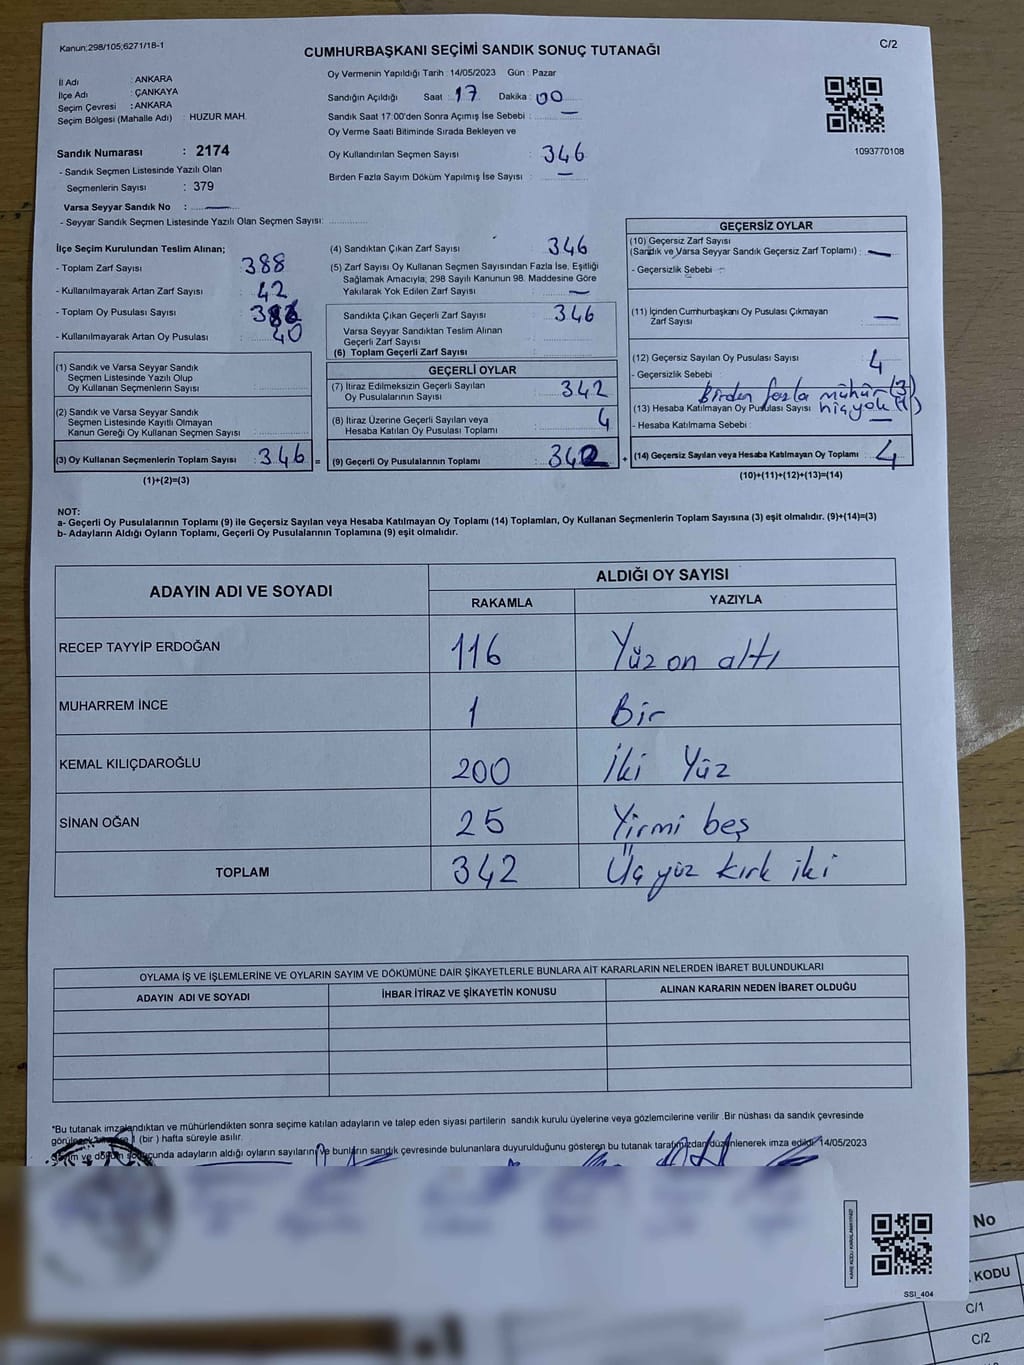 Kanun;298/105;6271/18-1
C/2
CUMHURBAŞKANI SEÇİMİ SANDIK SONUÇ TUTANAĞI
İl Adı : ANKARA
İlçe Adı : ÇANKAYA
Seçim Çevresi : ANKARA
Seçim Bölgesi (Mahalle Adı) : HUZUR MAH.
Sandık Numarası : 2174
- Sandık Seçmen Listesinde Yazılı Olan
Seçmenlerin Sayısı : 379
Varsa Seyyar Sandık No : —
- Seyyar Sandık Seçmen Listesinde Yazılı Olan Seçmen Sayısı:
Oy Vermenin Yapıldığı Tarih : 14/05/2023 Gün : Pazar
Sandığın Açıldığı Saat : 17 Dakika : 00
Sandık Saat 17:00'den Sonra Açımış İse Sebebi : —
Oy Verme Saati Bitiminde Sırada Bekleyen ve
Oy Kullandırılan Seçmen Sayısı : 346
Birden Fazla Sayım Döküm Yapılmış İse Sayısı : —
1093770108
İlçe Seçim Kurulundan Teslim Alınan;
- Toplam Zarf Sayısı : 388
- Kullanılmayarak Artan Zarf Sayısı : 42
- Toplam Oy Pusulası Sayısı :
- Kullanılmayarak Artan Oy Pusulası : 40
(1) Sandık ve Varsa Seyyar Sandık
Seçmen Listesinde Yazılı Olup
Oy Kullanan Seçmenlerin Sayısı
(2) Sandık ve Varsa Seyyar Sandık
Seçmen Listesinde Kayıtlı Olmayan
Kanun Gereği Oy Kullanan Seçmen Sayısı
(3) Oy Kullanan Seçmenlerin Toplam Sayısı : 346 =
(1)+(2)=(3)
(4) Sandıktan Çıkan Zarf Sayısı : 346
(5) Zarf Sayısı Oy Kullanan Seçmen Sayısından Fazla İse, Eşitliği
Sağlamak Amacıyla; 298 Sayılı Kanunun 98. Maddesine Göre
Yakılarak Yok Edilen Zarf Sayısı : —
Sandıkta Çıkan Geçerli Zarf Sayısı : 346
Varsa Seyyar Sandıktan Teslim Alınan
Geçerli Zarf Sayısı :
(6) Toplam Geçerli Zarf Sayısı :
GEÇERLİ OYLAR
(7) İtiraz Edilmeksizin Geçerli Sayılan
Oy Pusulalarının Sayısı : 342
(8) İtiraz Üzerine Geçerli Sayılan veya
Hesaba Katılan Oy Pusulası Toplamı : 4
(9) Geçerli Oy Pusulalarının Toplamı : 342 +
GEÇERSİZ OYLAR
(10) Geçersiz Zarf Sayısı
(Sandık ve Varsa Seyyar Sandık Geçersiz Zarf Toplamı) : —
- Geçersizlik Sebebi :
(11) İçinden Cumhurbaşkanı Oy Pusulası Çıkmayan
Zarf Sayısı : —
(12) Geçersiz Sayılan Oy Pusulası Sayısı : 4
- Geçersizlik Sebebi :
Birden fazla mühür (3)
(13) Hesaba Katılmayan Oy Pusulası Sayısı hiç yok (1)
- Hesaba Katılmama Sebebi : —
(14) Geçersiz Sayılan veya Hesaba Katılmayan Oy Toplamı : 4
(10)+(11)+(12)+(13)=(14)
NOT:
a- Geçerli Oy Pusulalarının Toplamı (9) ile Geçersiz Sayılan veya Hesaba Katılmayan Oy Toplamı (14) Toplamları, Oy Kullanan Seçmenlerin Toplam Sayısına (3) eşit olmalıdır. (9)+(14)=(3)
b- Adayların Aldığı Oyların Toplamı, Geçerli Oy Pusulalarının Toplamına (9) eşit olmalıdır.
ADAYIN ADI VE SOYADI
ALDIĞI OY SAYISI
RAKAMLA YAZIYLA
RECEP TAYYİP ERDOĞAN 116 Yüz on altı
MUHARREM İNCE 1 Bir
KEMAL KILIÇDAROĞLU 200 İki Yüz
SİNAN OĞAN 25 Yirmi beş
TOPLAM 342 Üç yüz kırk iki
OYLAMA İŞ VE İŞLEMLERİNE VE OYLARIN SAYIM VE DÖKÜMÜNE DAİR ŞİKAYETLERLE BUNLARA AİT KARARLARIN NELERDEN İBARET BULUNDUKLARI
ADAYIN ADI VE SOYADI İHBAR İTİRAZ VE ŞİKAYETİN KONUSU ALINAN KARARIN NEDEN İBARET OLDUĞU
*Bu tutanak imzalandıktan ve mühürlendikten sonra seçime katılan adayların ve talep eden siyasi partilerin sandık kurulu üyelerine veya gözlemcilerine verilir .Bir nüshası da sandık çevresinde
1 (bir ) hafta süreyle asılır.
adayların aldığı oyların sayılarını ve bunların sandık çevresinde bulunanlara duyurulduğunu gösteren bu tutanak tarafımızdan düzenlenerek imza edildi. 14/05/2023
SSI_404
No
KODU
C/1
C/2